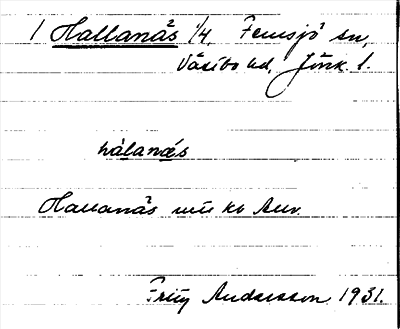 1 Hallanäs 1/4, Femsjö sn,
Västbo hd, Jönk. l.
hàlanæ̀s
Hallanäs
Frity Andersson 1931.